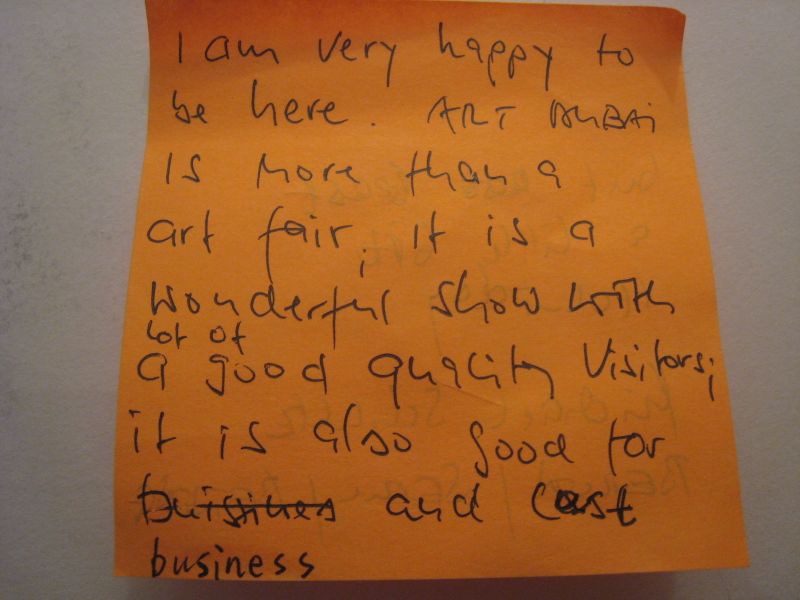 I am very happy to
be here. ART DUBAI
IS more than a
art fair, it is a
wonderful show with
lot of
a good quality Visitors;
it is also good for
buissines and
business